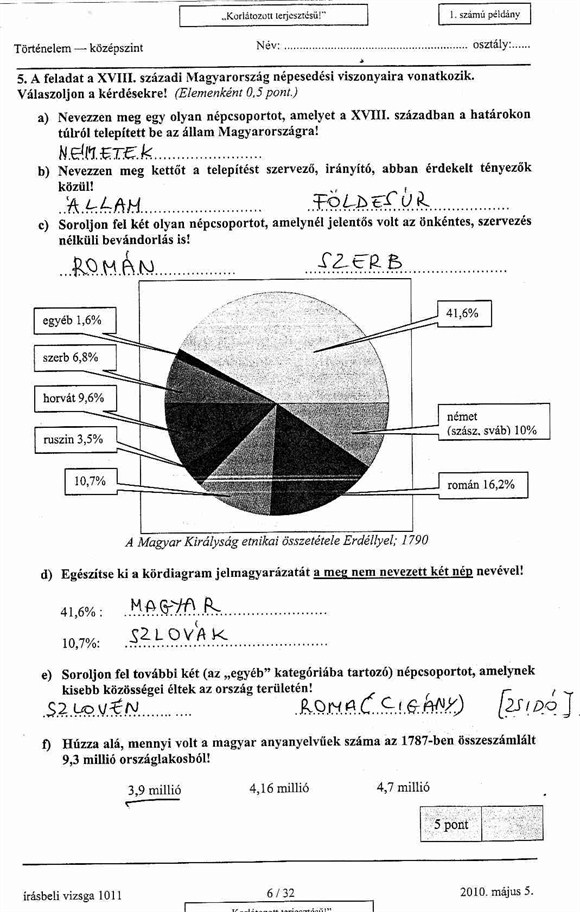 „Korlátozott terjesztésű!”
1. számú példány
Történelem — középszint
Név: ................ osztály:......
5. A feladat a XVIII. századi Magyarország népesedési viszonyaira vonatkozik.
Válaszoljon a kérdésekre! (Elemenként 0,5 pont.)
a) Nevezzen meg egy olyan népcsoportot, amelyet a XVIII. században a határokon
túlról telepített be az állam Magyarországra!
NÉMETEK
b) Nevezzen meg kettőt a telepítést szervező, irányító, abban érdekelt tényezők
közül!
ÁLLAM FÖLDESÚR
c) Soroljon fel két olyan népcsoportot, amelynél jelentős volt az önkéntes, szervezés
nélküli bevándorlás is!
ROMÁN SZERB
egyéb 1,6%
41,6%
szerb 6,8%
horvát 9,6%
német
(szász, sváb) 10%
ruszin 3,5%
10,7%
román 16,2%
A Magyar Királyság etnikai összetétele Erdéllyel; 1790
d) Egészítse ki a kördiagram jelmagyarázatát a meg nem nevezett két nép nevével!
41,6% : MAGYAR
10,7%: SZLOVÁK
e) Soroljon fel további két (az „egyéb” kategóriába tartozó) népcsoportot, amelynek
kisebb közösségei éltek az ország területén!
SZLOVÉN ROMA(CIGÁNY) [ZSIDÓ]
f) Húzza alá, mennyi volt a magyar anyanyelvűek száma az 1787-ben összeszámlált
9,3 millió országlakosból!
3,9 millió 4,16 millió 4,7 millió
5 pont
írásbeli vizsga 1011
6 / 32
2010. május 5.